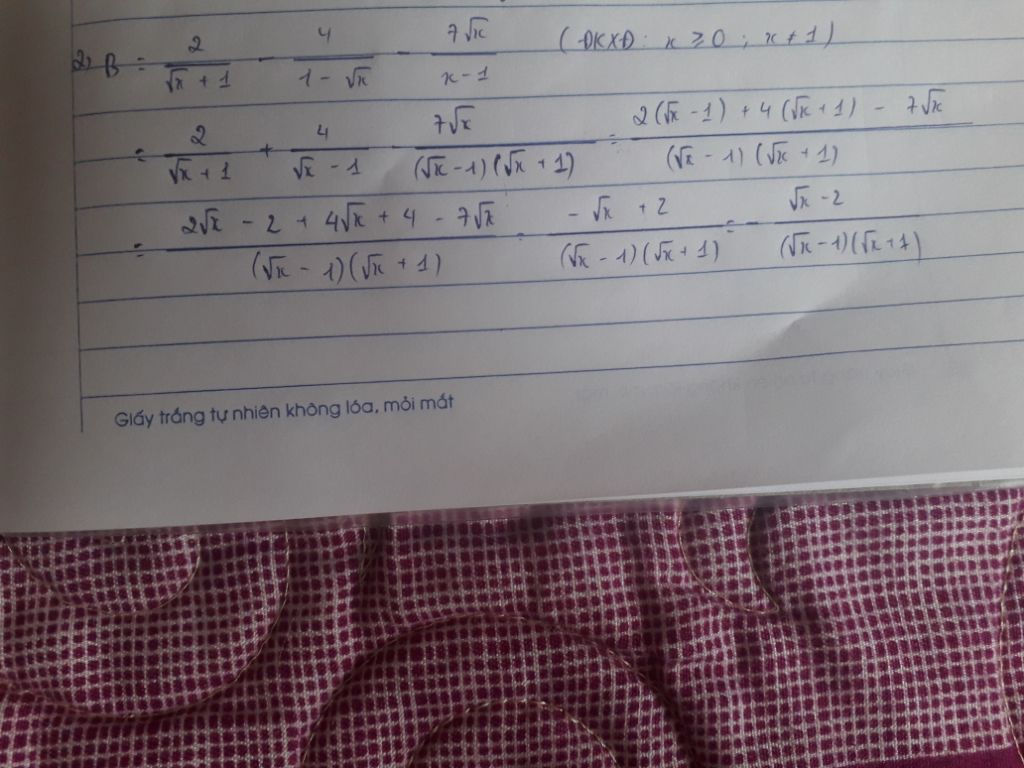 2) B = 2/(√x + 1) - 4/(1 - √x) - 7√x/(x - 1) (ĐKXĐ: x ≥ 0; x ≠ 1)
= 2/(√x + 1) + 4/(√x - 1) - 7√x/((√x - 1)(√x + 1)) = (2(√x - 1) + 4(√x + 1) - 7√x)/((√x - 1)(√x + 1))
= (2√x - 2 + 4√x + 4 - 7√x)/((√x - 1)(√x + 1)) = (-√x + 2)/((√x - 1)(√x + 1)) = - (√x - 2)/((√x - 1)(√x + 1))
Giấy trắng tự nhiên không lóa, mỏi mắt